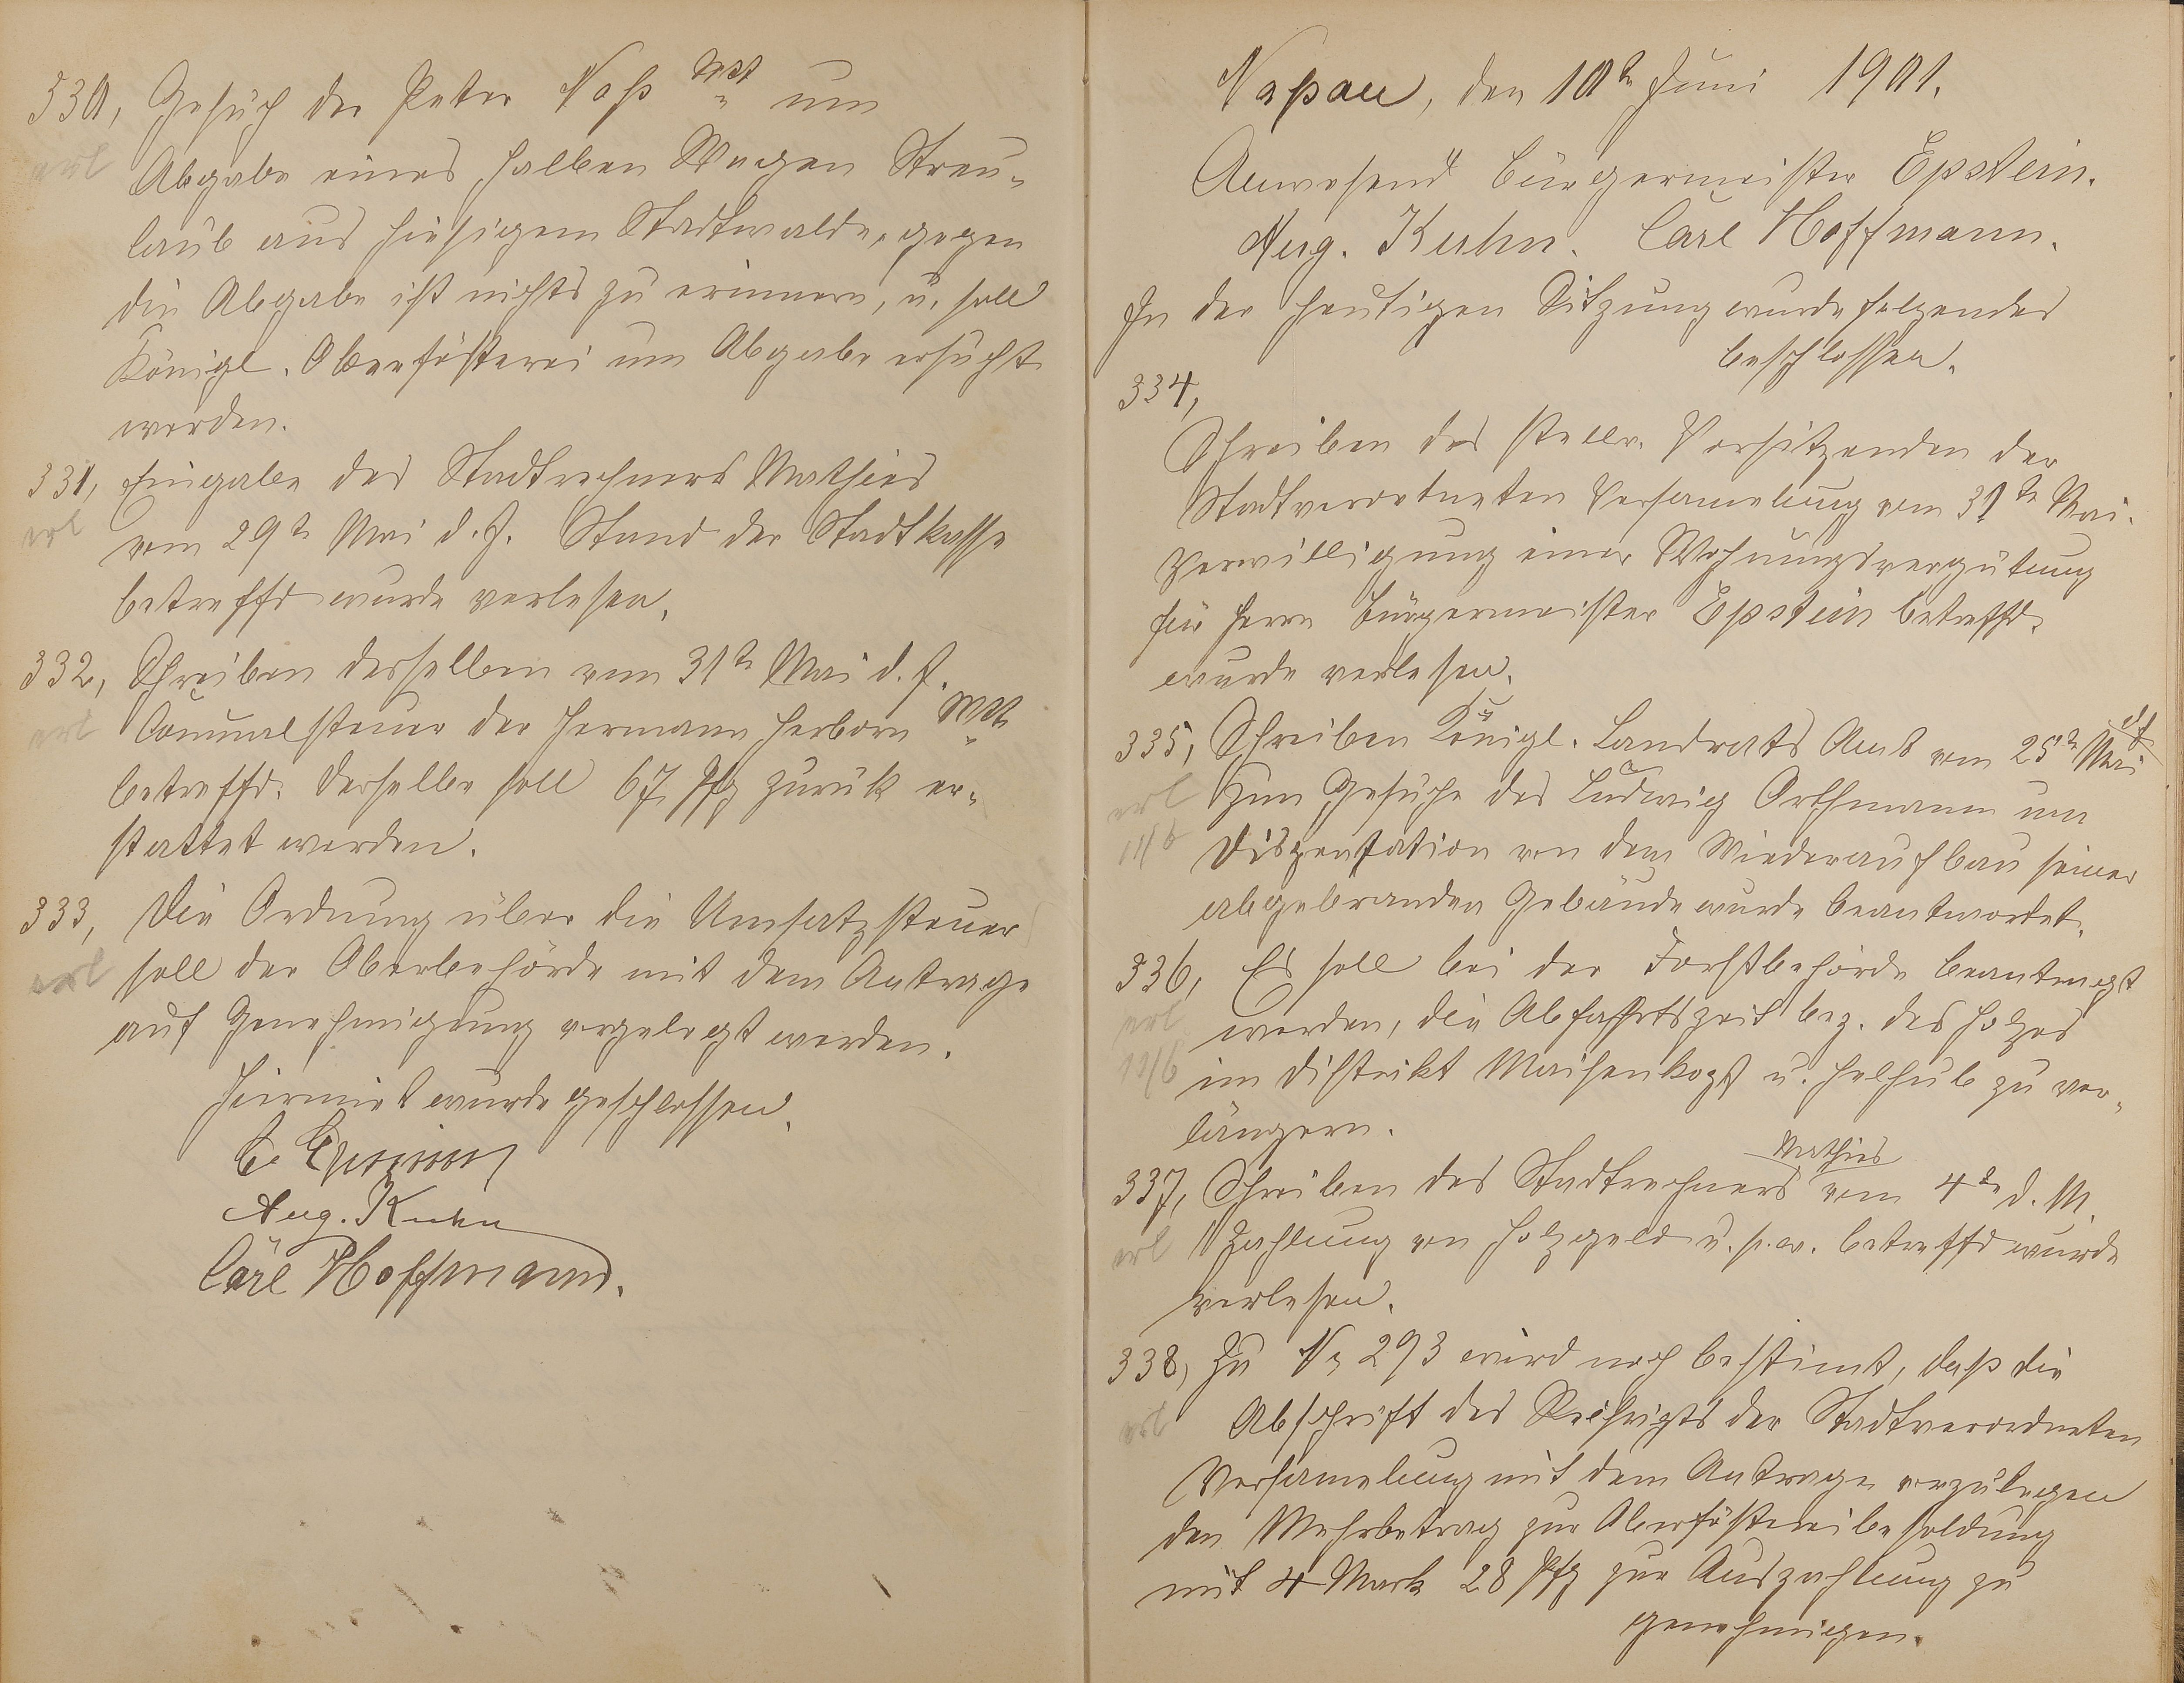 330, Gesuch der Peter Noß Wtt um
erl Abgabe eines halben Wagen Streu-
laub aus hiesigem Stadtwalde, gegen
die Abgabe ist nichts zu erinnern, u. soll
Königl. Oberfösterei um Abgabe ersucht
werden.
331, Eingabe des Stadtrechners Mathies
erl vom 29te Mai d. J. Stand der Stadtkasse
betreffd wurde verlesen.
332, Schreiben desselben vom 31te Mai d. J.
erl Comunalsteuer der Hermann Herborn Wtt
betreffd. derselbe soll 67 Pfg zurük er-
stattet werden.
333, Die Ordnung über die Umsatzsteuer
erl soll der Oberbehörde mit dem Antrage
auf Genehmigung vorgelegt werden.
Hiermit wurde geschlossen.
Aug. Kuhn
Carl Hoffmann.
Naßau, den 10te Juni 1901.
Anwesend Bürgermeister Epstein.
Aug. Kuhn. Carl Hoffmann.
In der heutigen Sitzung wurde folgendes
beschlossen.
334,
Schreiben des stellv. Vorsitzenden der
Stadtverordneten Versamelung vom 31te Mai.
Verwilligung einer Wohnungsvergütung
für Herrn Bürgermeister Epstein betreffd.
wurde verlesen.
335, Schreiben Königl. Landrats Amt vom 25te Mai d J
erl zum Gesuche des Ludwig Orthmann um
11/6 Dispensation von dem Wiederaufbau seiner
abgebranden Gebäude wurde beantwortet.
336, Es soll bei der Forstbehörde beantragt
erl werden, die Abfahrtszeit bez. des Holzes
11/6 im Distrikt u. zu ver-
längern.
337, Schreiben des Stadtrechners Mathies vom 4te d. M.
erl Zahlung von Holzgeld u. s. w. betreffd wurde
verlesen.
338, Zu No 293 wird noch bestimt, daß die
erl Abschrift des der Stadtverordneten
Versamelung mit dem Antrage vorzulegen
den Mehrbetrag zur Oberföstereibesoldung
mit 4 Mark 28 Pfg zur Auszahlung zu
genehmigen.